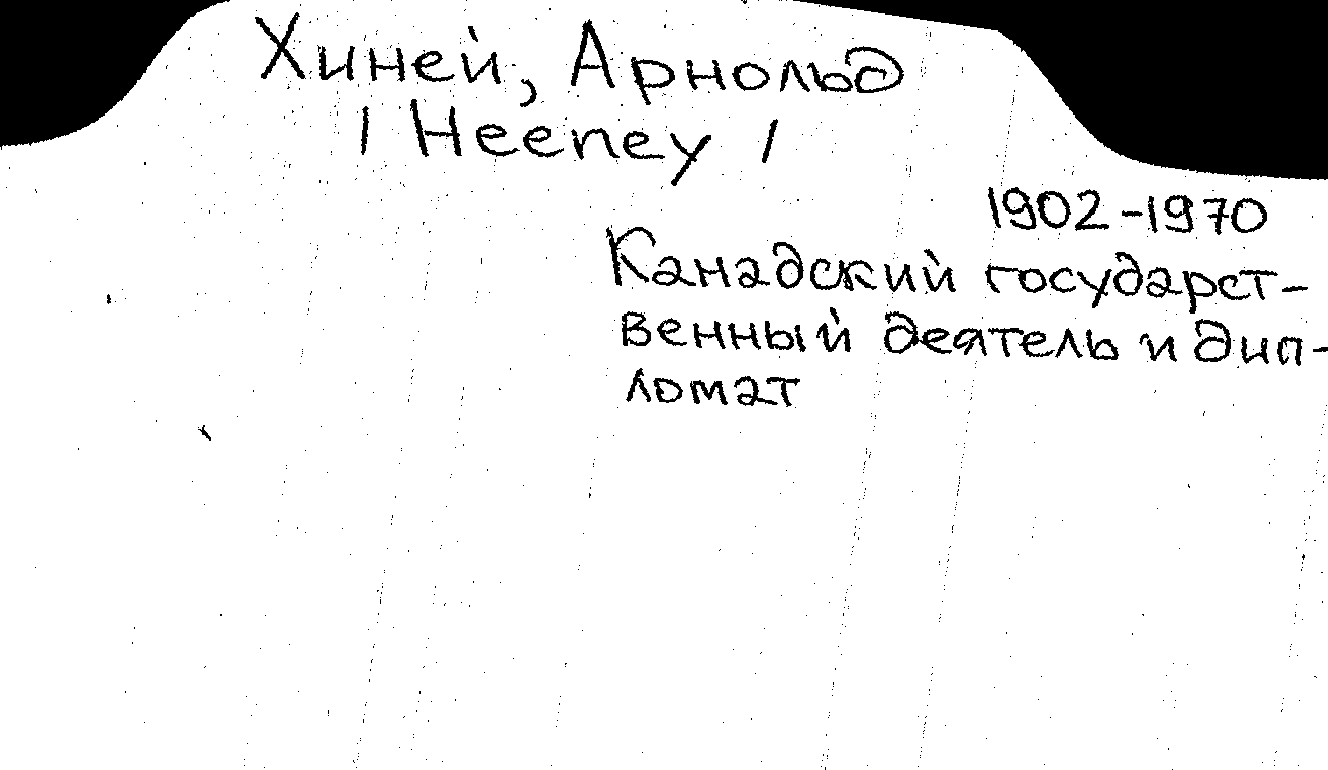 Хиней, Арнольд
/ Heeney /
1902-1970
Канадский государст-
венный деятель и дип-
ломат